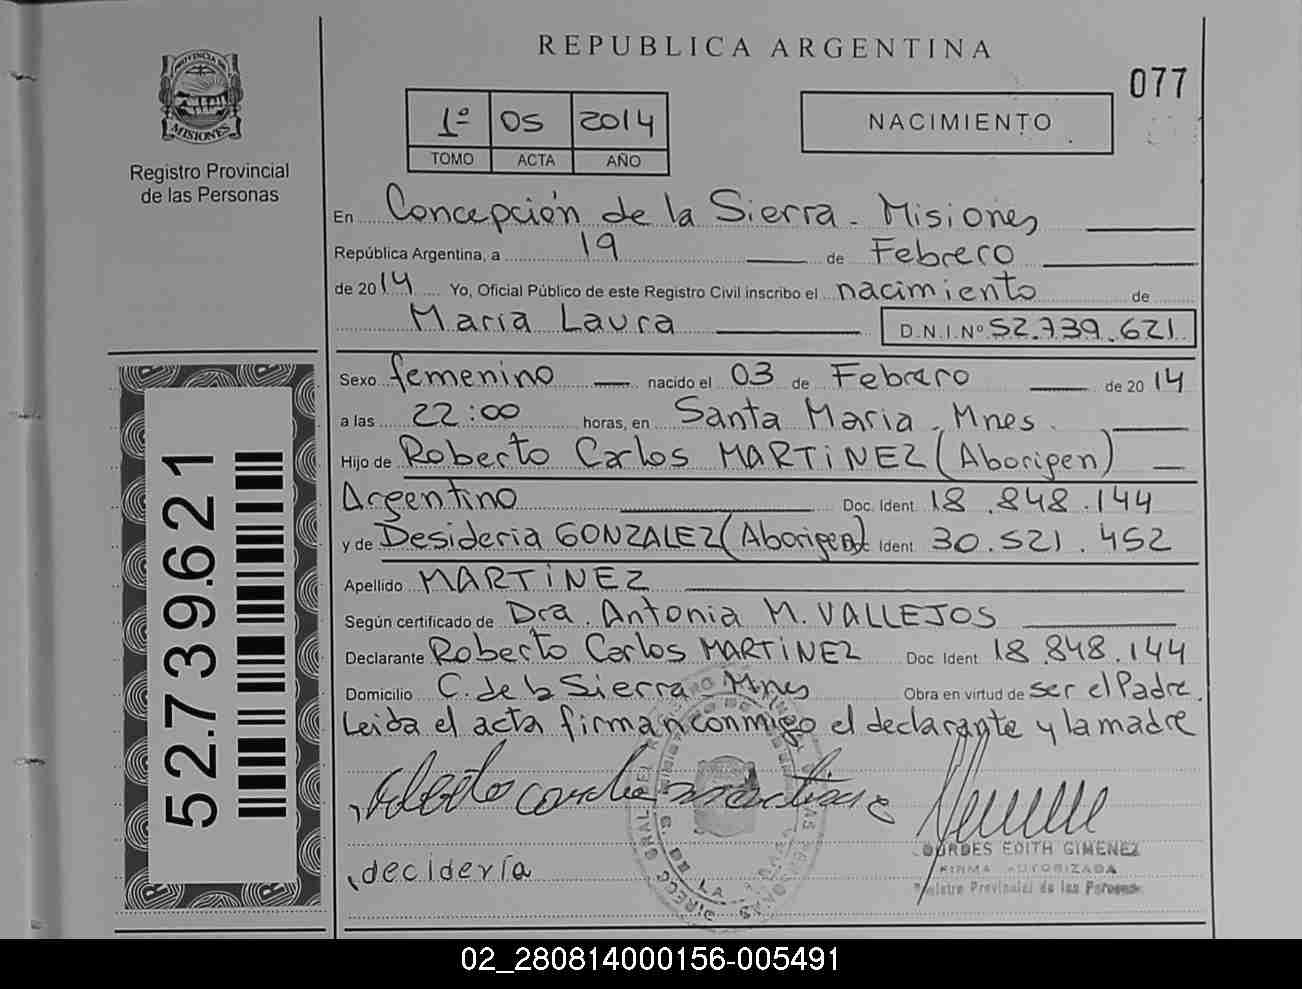 REPUBLICA ARGENTINA
077
PROVINCIA DE
MISIONES
Registro Provincial
de las Personas
1º 05 2014
TOMO ACTA AÑO
NACIMIENTO
En Concepción de la Sierra - Misiones
República Argentina, a 19 de Febrero
de 2014 Yo, Oficial Público de este Registro Civil inscribo el nacimiento de
María Laura D.N.I.Nº 52.739.621
Sexo femenino nacido el 03 de Febrero de 2014
a las 22:00 horas, en Santa Maria. Mnes.
Hijo de Roberto Carlos MARTiNEZ (Aborigen)
Argentino Doc. Ident 18.848.144
y de Desideria GONZALEZ (Aborigen) Doc Ident 30.521.452
Apellido MARTiNEZ
Según certificado de Dra. Antonia M. VALLEJOS
Declarante Roberto Carlos MARTiNEZ Doc Ident 18.848.144
Domicilio C. de la Sierra - Mnes Obra en virtud de ser el Padre.
Leida el acta firman conmigo el declarante y la madre
decidería
LOURDES EDITH GIMENEZ
FIRMA AUTORIZADA
Registro Provincial de las Personas
52.739.621
02_280814000156-005491